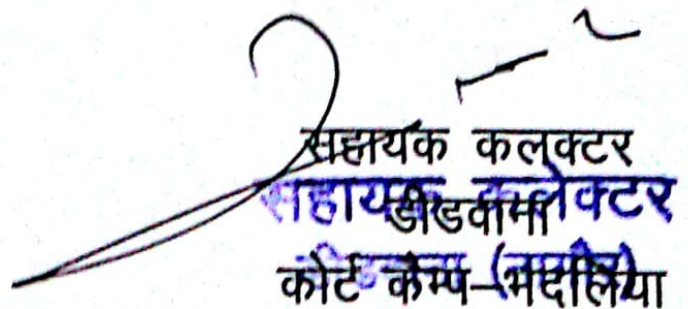 सहायक कलक्टर
सहायक कलेक्टर
डीडवाना
कोर्ट कैम्प-भदलिया